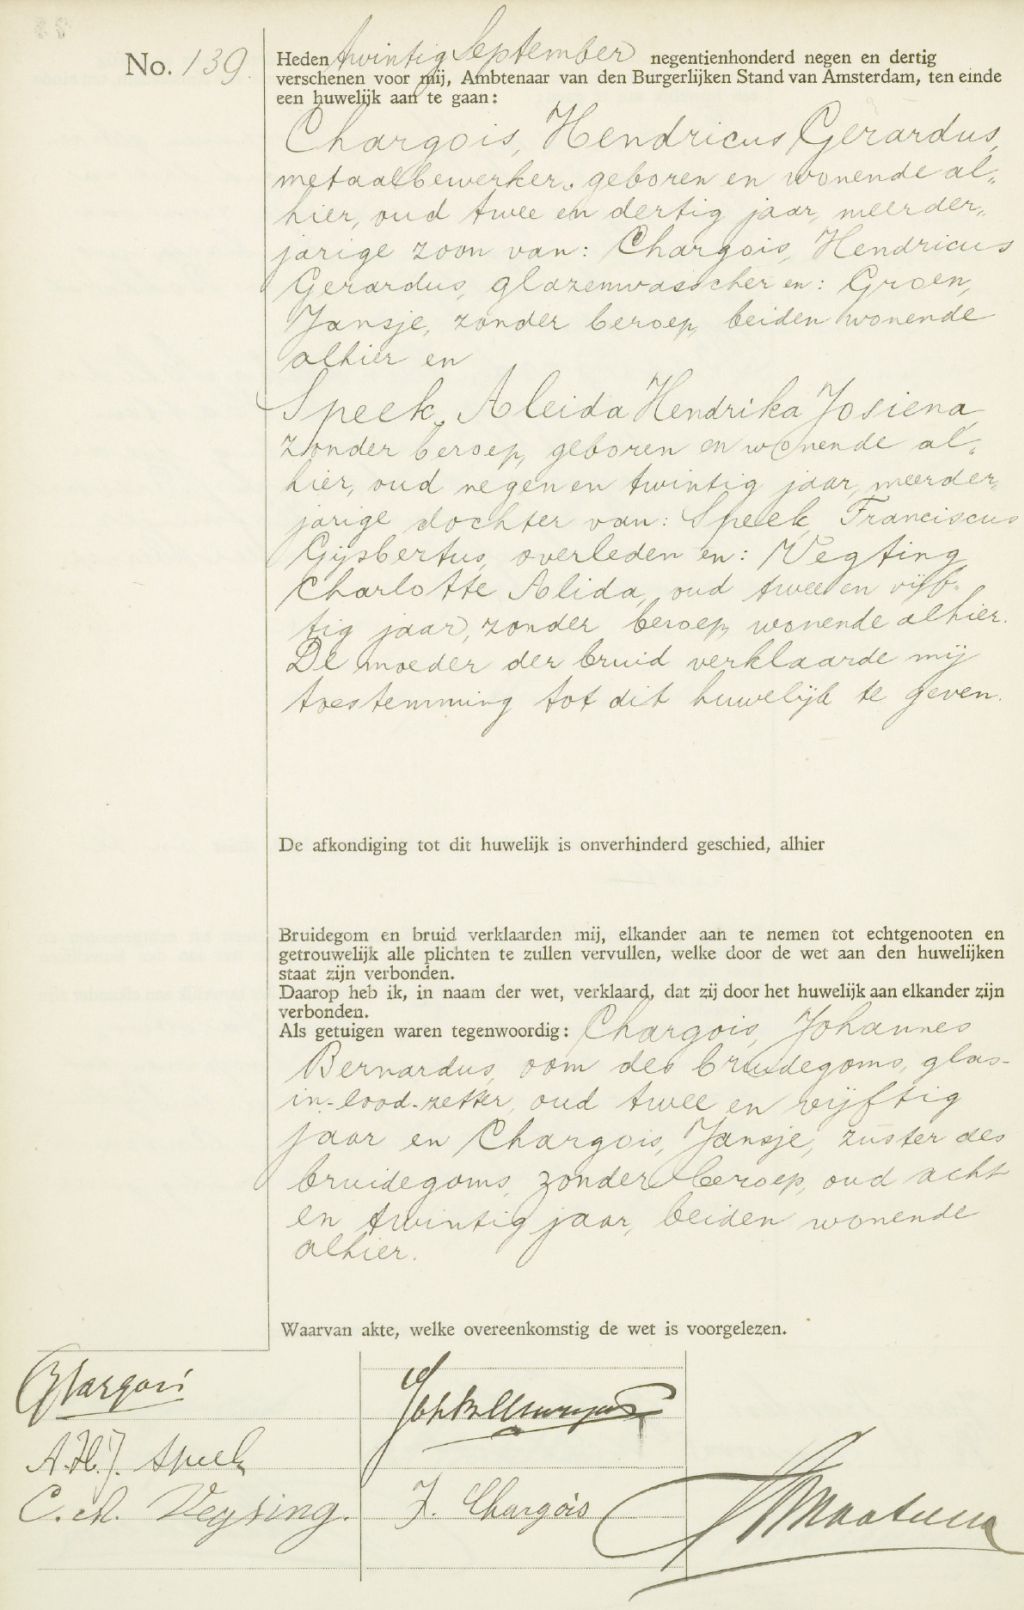 No. 139.
Heden twintig September negentienhonderd negen en dertig
verschenen voor mij, Ambtenaar van den Burgerlijken Stand van Amsterdam, ten einde
een huwelijk aan te gaan:
Chargois, Hendricus Gerardus,
metaalbewerker, geboren en wonende al-
hier, oud twee en dertig jaar, meerder-
jarige zoon van: Chargois, Hendricus
Gerardus, glazenwasscher en: Groen,
Jansje, zonder beroep, beiden wonende
alhier en
Speek, Aleida Hendrika Josiena,
zonder beroep, geboren en wonende al-
hier, oud negen en twintig jaar, meerder-
jarige dochter van: Speek, Franciscus
Gijsbertus, overleden en: Vegting,
Charlotte Alida, oud twee en vijf-
tig jaar, zonder beroep, wonende alhier.
De moeder der bruid verklaarde mij
toestemming tot dit huwelijk te geven.
De afkondiging tot dit huwelijk is onverhinderd geschied, alhier
Bruidegom en bruid verklaarden mij, elkander aan te nemen tot echtgenooten en
getrouwelijk alle plichten te zullen vervullen, welke door de wet aan den huwelijken
staat zijn verbonden.
Daarop heb ik, in naam der wet, verklaard, dat zij door het huwelijk aan elkander zijn
verbonden.
Als getuigen waren tegenwoordig: Chargois, Johannes
Bernardus, oom des bruidegoms, glas-
in-lood-zetter, oud twee en vijftig
jaar en Chargois, Jansje, zuster des
bruidegoms, zonder beroep, oud acht
en twintig jaar, beiden wonende
alhier.
Waarvan akte, welke overeenkomstig de wet is voorgelezen.
Chargois
A.H.J. Speek
C. A. Vegting.
J. Chargois